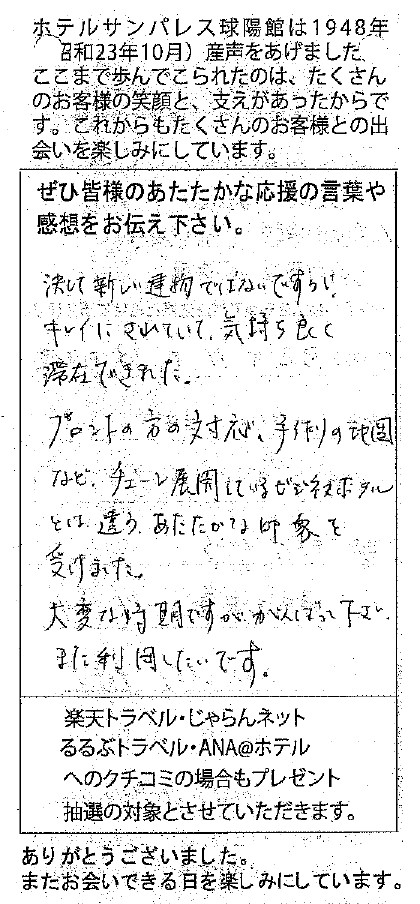 ホテルサンパレス球陽館は1948年
昭和23年10月）産声をあげました
ここまで歩んでこられたのは、たくさん
のお客様の笑顔と、支えがあったからで
す。これからもたくさんのお客様との出
会いを楽しみにしています。
ぜひ皆様のあたたかな応援の言葉や
感想をお伝え下さい。
決して新しい建物ではないですが、
キレイにされていて、気持ち良く
滞在できれた。
フロントの方の対応、手作りの地図
など、チェーン展開しているビジネスホテル
とは違う、あたたかな印象を
受けました。
大変な時期ですががんばって下さい。
また利用したいです。
楽天トラベル・じゃらんネット
るるぶトラベル・ANA@ホテル
へのクチコミの場合もプレゼント
抽選の対象とさせていただきます。
ありがとうございました。
またお会いできる日を楽しみにしています。